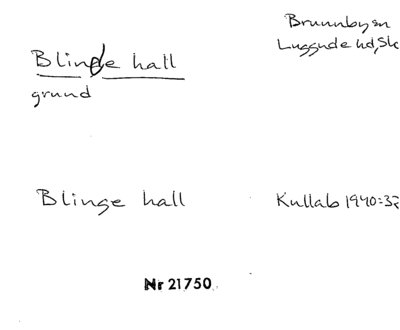 Brunnby sn
Luggude hd, Sk
Blinde hall
grund
Blinge hall
Kullab 1940:32
Nr 21750